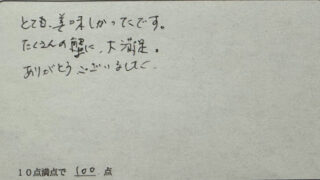 とても、美味しかったです。
たくさんの蟹に、大満足。
ありがとうございました。
10点満点で 100 点